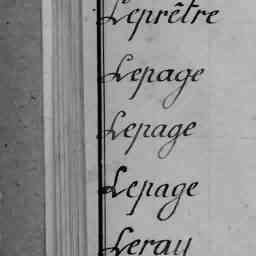 Leprêtre
Lepage
Lepage
Lepage
Leray